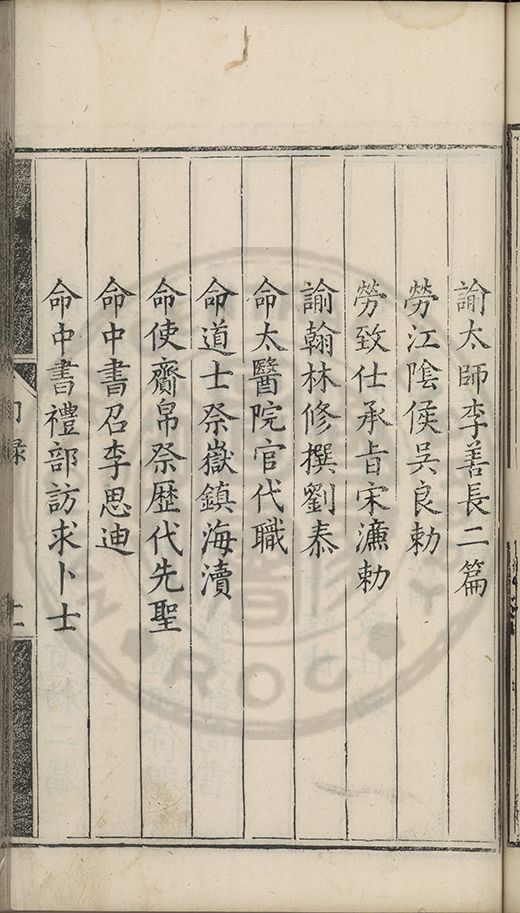 諭太師李善長二篇
勞江隂侯吳良勅
勞致仕承旨宋濂勅
諭翰林修撰劉泰
命太醫院官代職
命道士祭嶽鎮海瀆
命使齎帛祭歷代先聖
命中書召李思迪
命中書禮部訪求卜士